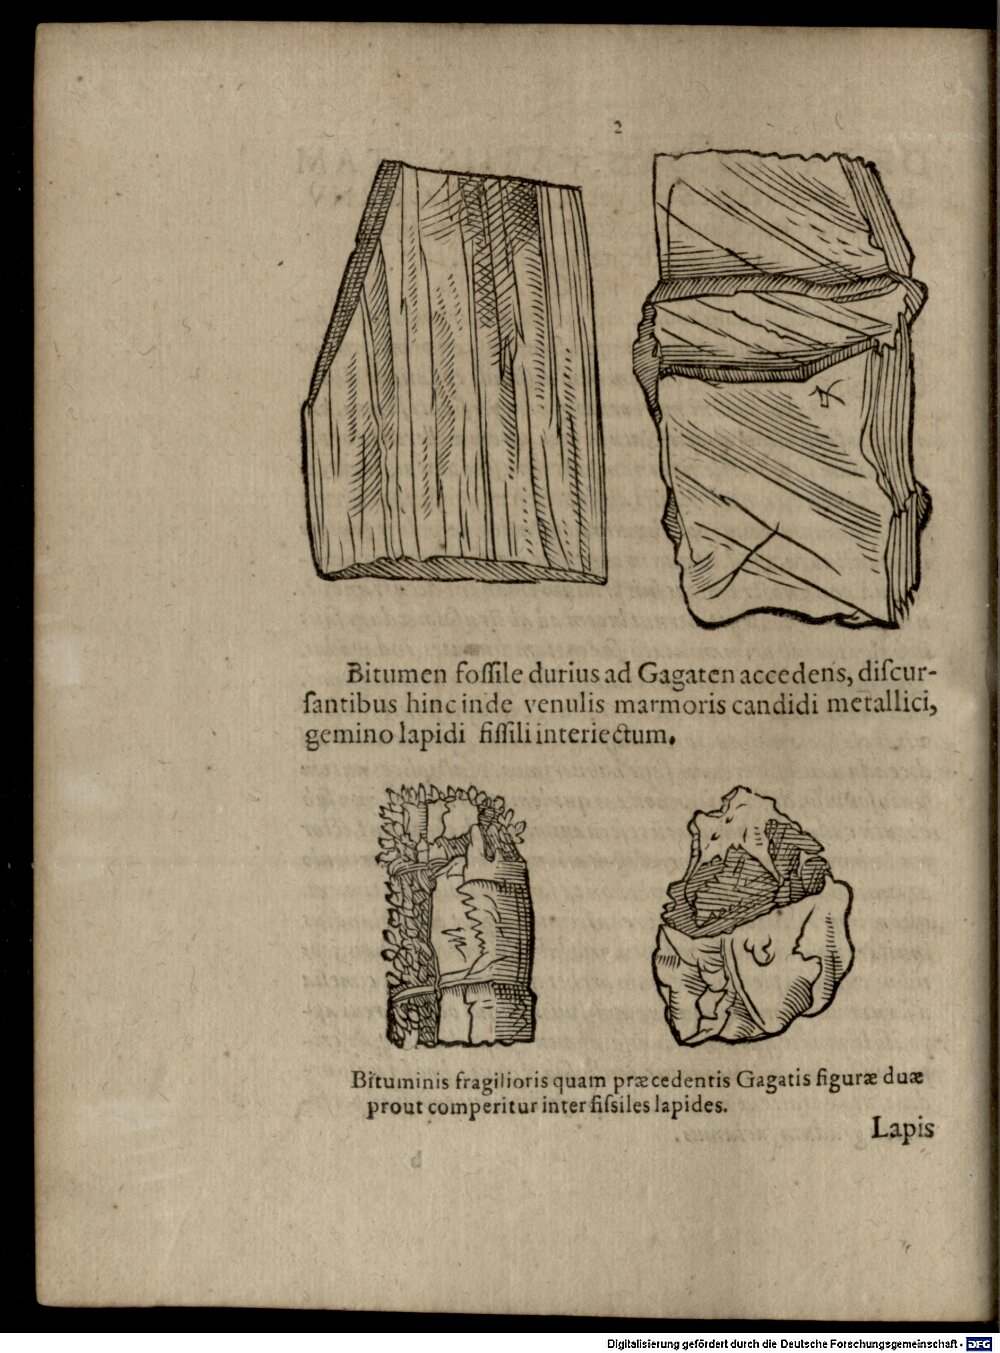 2
Bitumen foſſile durius ad Gagaten accedens, diſcur-
ſantibus hinc inde venulis marmoris candidi metallici,
gemino lapidi fiſſili interiectum.
Bituminis fragilioris quam præcedentis Gagatis figuræ duæ
prout comperitur inter fiſsiles lapides.
Lapis
Digitalisierung gefördert durch die Deutsche Forschungsgemeinschaft - DFG